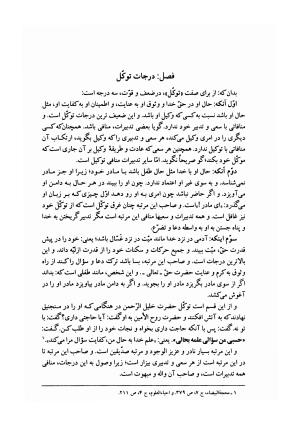 فصل: درجات توکّل
بدان‌که: از برای صفت «توکّل»، در ضعف و قوّت، سه درجه است:
اوّل آنکه: حال او در حقّ خدا و وثوق او به عنایت، و اطمینان او به کفایت او، مثل
حال او باشد نسبت به کسی که وکیل او باشد. و این ضعیف ترین درجات توکّل است. و
منافاتی با سعی و تدبیر خود ندارد. گویا بعضی تدبیرات، منافی باشد. همچنان‌که کسی
دیگری را در امری وکیل می‌کند، هر سعی و تدبیری را که وکیل به او بگوید، ارتکاب آن
منافی با توکیل ندارد. همچنین هر سعی که عادت و طریقهٔ وکیل بر آن جاری باشد که
موکّل خود بکند، اگر صریحاً نگوید. امّا سایر تدبیرات منافی توکیل است.
دوم آنکه: حال او با خدا مثل حال طفل باشد با مادر خود؛ زیرا او جز مادر
نمی‌شناسد. و به سوی غیر او اعتماد ندارد. چون او را ببیند در هر حال به دامن او
می‌آویزد. و اگر حاضر نباشد چون امری به او رو دهد اوّل چیزی که به زبان او
می‌گذرد: ‌ای مادر آیاست. و صاحب این مرتبه چنان غرق توکّل است که از توکّل خود
نیز غافل است. و همه تدبیرات و سعیها منافی این مرتبه است مگر تدبیر گریختن به خدا
و پناه جستن به او به واسطه دعا و تضرّع.
سوم اینکه: آدمی در نزد خدا مانند میّت در نزد غسّال باشد؛ یعنی: خود را در پیش
قدرت حقّ، میّت ببیند. و جمیع حرکات و سکنات خود را از قدرت ازلیّه داند. و این
بالاترین درجات است. و صاحب این مرتبه، بسا باشد ترک دعا و سؤال را کند از راه
وثوق به کرم و عنایت حضرت حقّ ـ تعالی ـ. و این شخصی، مانند طفلی است که: بداند
اگر از سعی مادر بگریزد مادر او را بجوید. و اگر به دامن مادر بیاویزد مادر او را در
آغوش می‌کشد.
و از این قسم است توکّل حضرت خلیل الرّحمن در هنگامی که او را در منجنیق
نهادند که به آتش افکنند. و حضرت روح الأمین به او گفت: آیا حاجتی داری؟ گفت: با
تو ندارم. گفت: به آنکه حاجت داری بخواه و نجات خود را از او طلب کن. گفت:
«حسبی من سؤالی علمه بحالی»، یعنی: «علم خدا به حال من، کفایت سؤال مرا می‌کند.»۱
و این بسیار بسیار نادر و عزیز الوجود و مرتبه صدّیقین است. و صاحب این مرتبه تا
در این مرتبه است مانند حیرت زدگان، بی‌تدبیر است؛ زیرا وصول به این درجه، منافی
همه تدبیرات است، و صاحب آن واله و مبهوت است.
۱ ـ محجّةالبیضاء، ج ۷، ص ۳۷۹. و احیاءالعلوم، ج ۴، ص ۲۱۱.